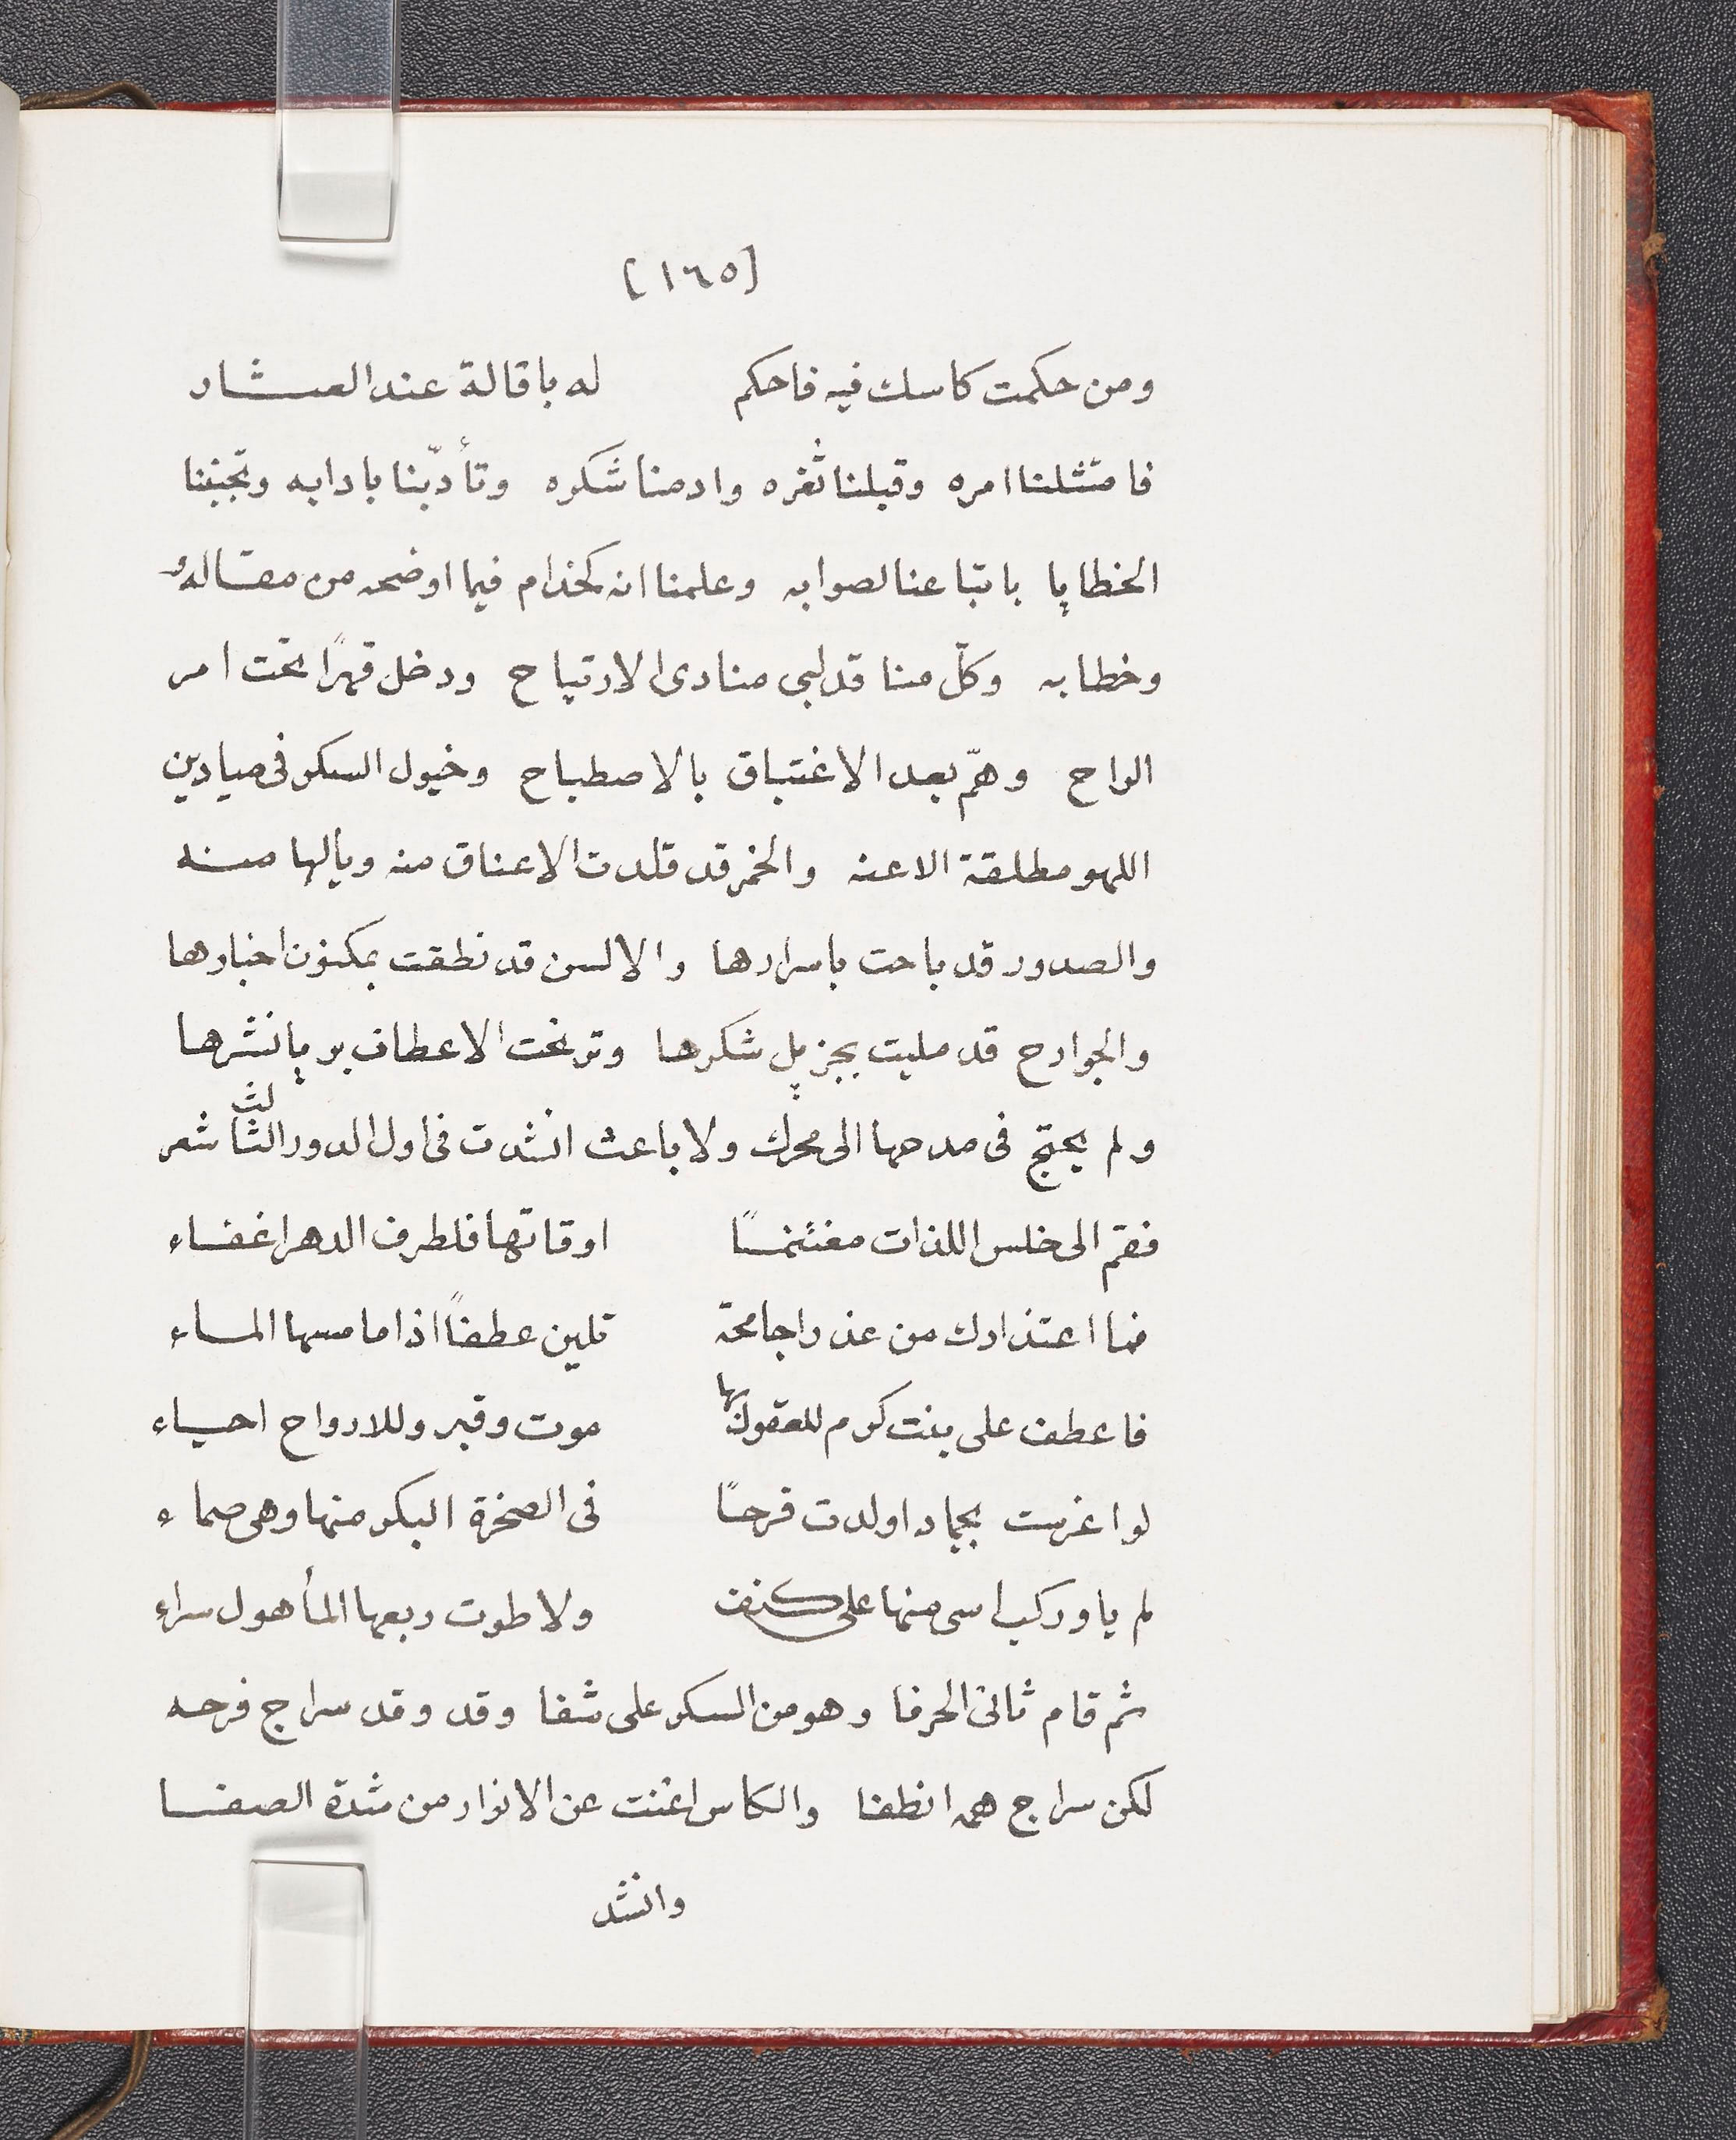 [١٦٥]
ومن حكمت كاسك فيه فاحكم له باقالة عند العثار
فامتثلنا امره وقبلنا ثغره وادمنا شكره وتأدّبنا بادابه وتجنبنا
الخطايا باتباعنا لصوابه وعلمنا انه كخذام فيما اوضحه من مقاله
وخطابه وكلّ منا قد لبى منادى الارتياح ودخل قهرًا تحت امر
الراح وهمّ بعد الاغتباق بالاصطباح وخيول السكر فى ميادين
اللهو مطلقة الاعنه والخمر قد قلدت الاعناق منه ويالها منه
والصدور قد باحت باسرارها والالسن قد نطقت بمكنون اخبارها
والجوارح قد مليت بجزيل شكرها وترنحت الاعطاف بريا نشرها
ولم يحتج فى مدحها الى محرك ولا باعث انشدت فى اول الدور الثالث شعر
فقم الى خلس اللذات مغتنمًا اوقاتها فلطرف الدهر اغفاء
فما اعتذارك من عذراجامحة تلين عطفاً اذا ما مسها الماء
فاعطف على بنت كرم للعقول بها موت وقبر وللارواح احياء
لو اغرست بجماد اولدت فرحًا فى الصخرة البكر منها وهى صماء
لم ياو ركب اسى منها على كنف ولا طوت ربعها المأهول سراء
ثم قام ثانى الحرفا وهو من السكر على شفا وقد وقد سراج فرحه
لكن سراج همه انطفا والكاس اغنت عن الانوار من شدة الصفا
وانشد